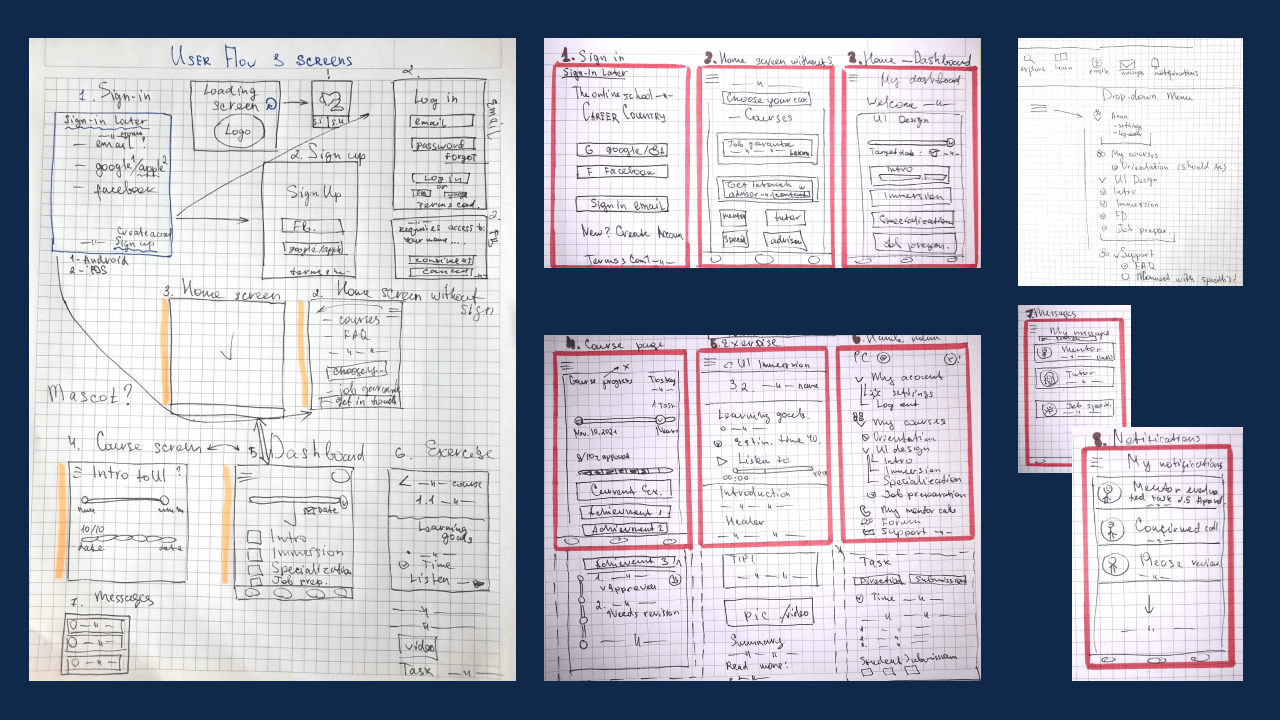 USER FLOW & SCREENS
1. Sign-in
Sign-in later
email
google/apple
facebook
Create accou
Sign up
1 - Android
2 - iOS
Loading
screen
Logo
2. Sign up
Sign Up
Fb.
google/apple
2.
Log in
email
password
forgot
Log in
or
email
Requires access to:
Your name....
continue as
cancel
3. Home screen
2. Home screen without
sign
courses
FAQ
get in touch
Mascot?
4. Course screen
Intro to UI ?
10/10
date
5. Dashboard
date
Intro
Immersion
Specialization
Job prep.
6 Exercise
course
1.1
Learning
goals
Time
Listen
video
Task
7. Messages
1. Sign in
Sign-in Later
The online school
CAREER COUNTRY
G google/
F Facebook
Sign in email
New? Create Accoun
2. Home screen without
Choose your
Courses
Job garantee
Get in touch w
advisor
contact
mentor
tutor
advisor
3. Home - Dashboard
My dashboard
Welcome
UI Design
Target date:
Intro
Immersion
Specialization
Job prepar.
4. Course page
Course progress
Today
1 Task
Nov. 10. 2021
approved
Current Ex.
Achievment 1
Achievment 2
Achievment 3
1.
Approved
2.
Needs revision
5. Exersise
UI Immersion
3.2. name
Learning goals.
Estim. time 40.
Listen to
00:00
Introduction
Header
TIP!
Pic /video
Summary
Read more:
My account
settings
Log out
My courses
Orientation
UI design
Intro
Immersion
Specialisation
Job preparation
My mentor calls
Forum
Support
Task
Direction
Submission
Time
Student submission
explore
learn
profile
messages
notifications
Drop-down Menu
Anna
settings
logout
My courses
Orientation (should be)
UI Design
Intro
Immersion
FD
Job prepar.
Support
FAQ
7. Messages
My messages
Mentor
Tutor
Job speci.
8. Notifications
My notifications
Mentor evalua
ted task 2.5 Approved.
Confirmed call
Please review